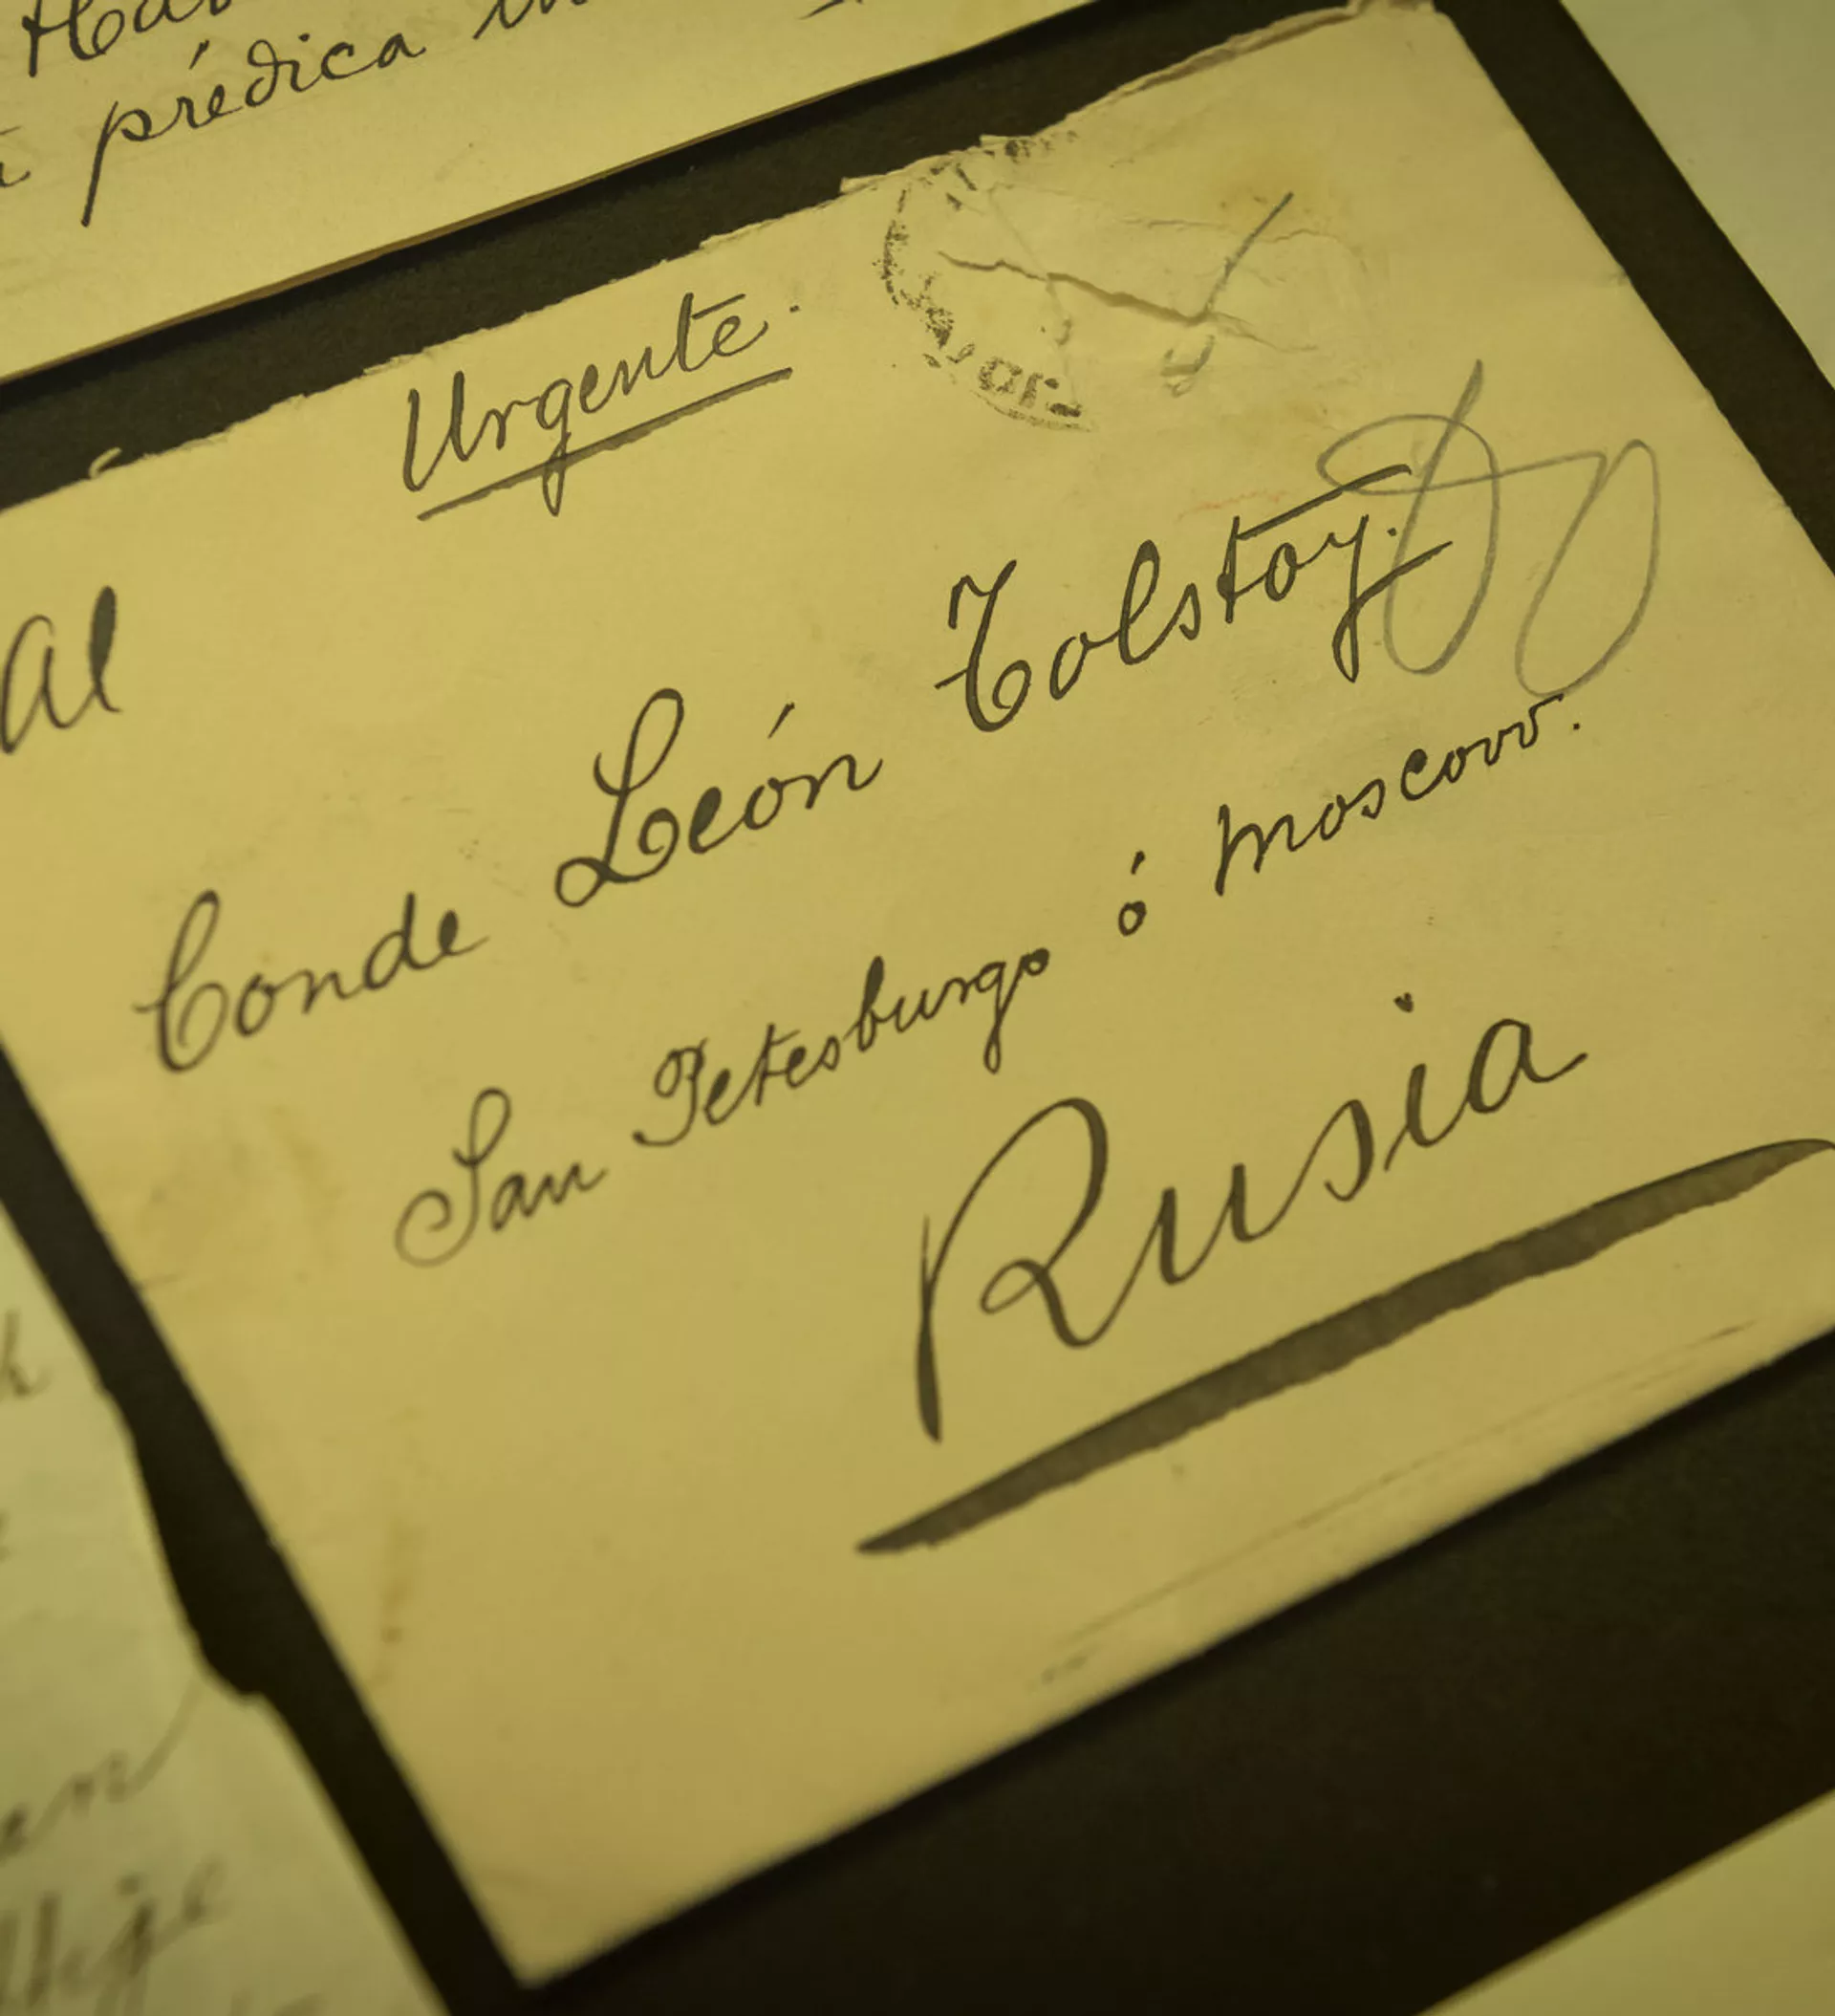 prédica
Urgente.
Al
Conde León Tolstoy.
San Petesburgo ó Moscovv.
Rusia